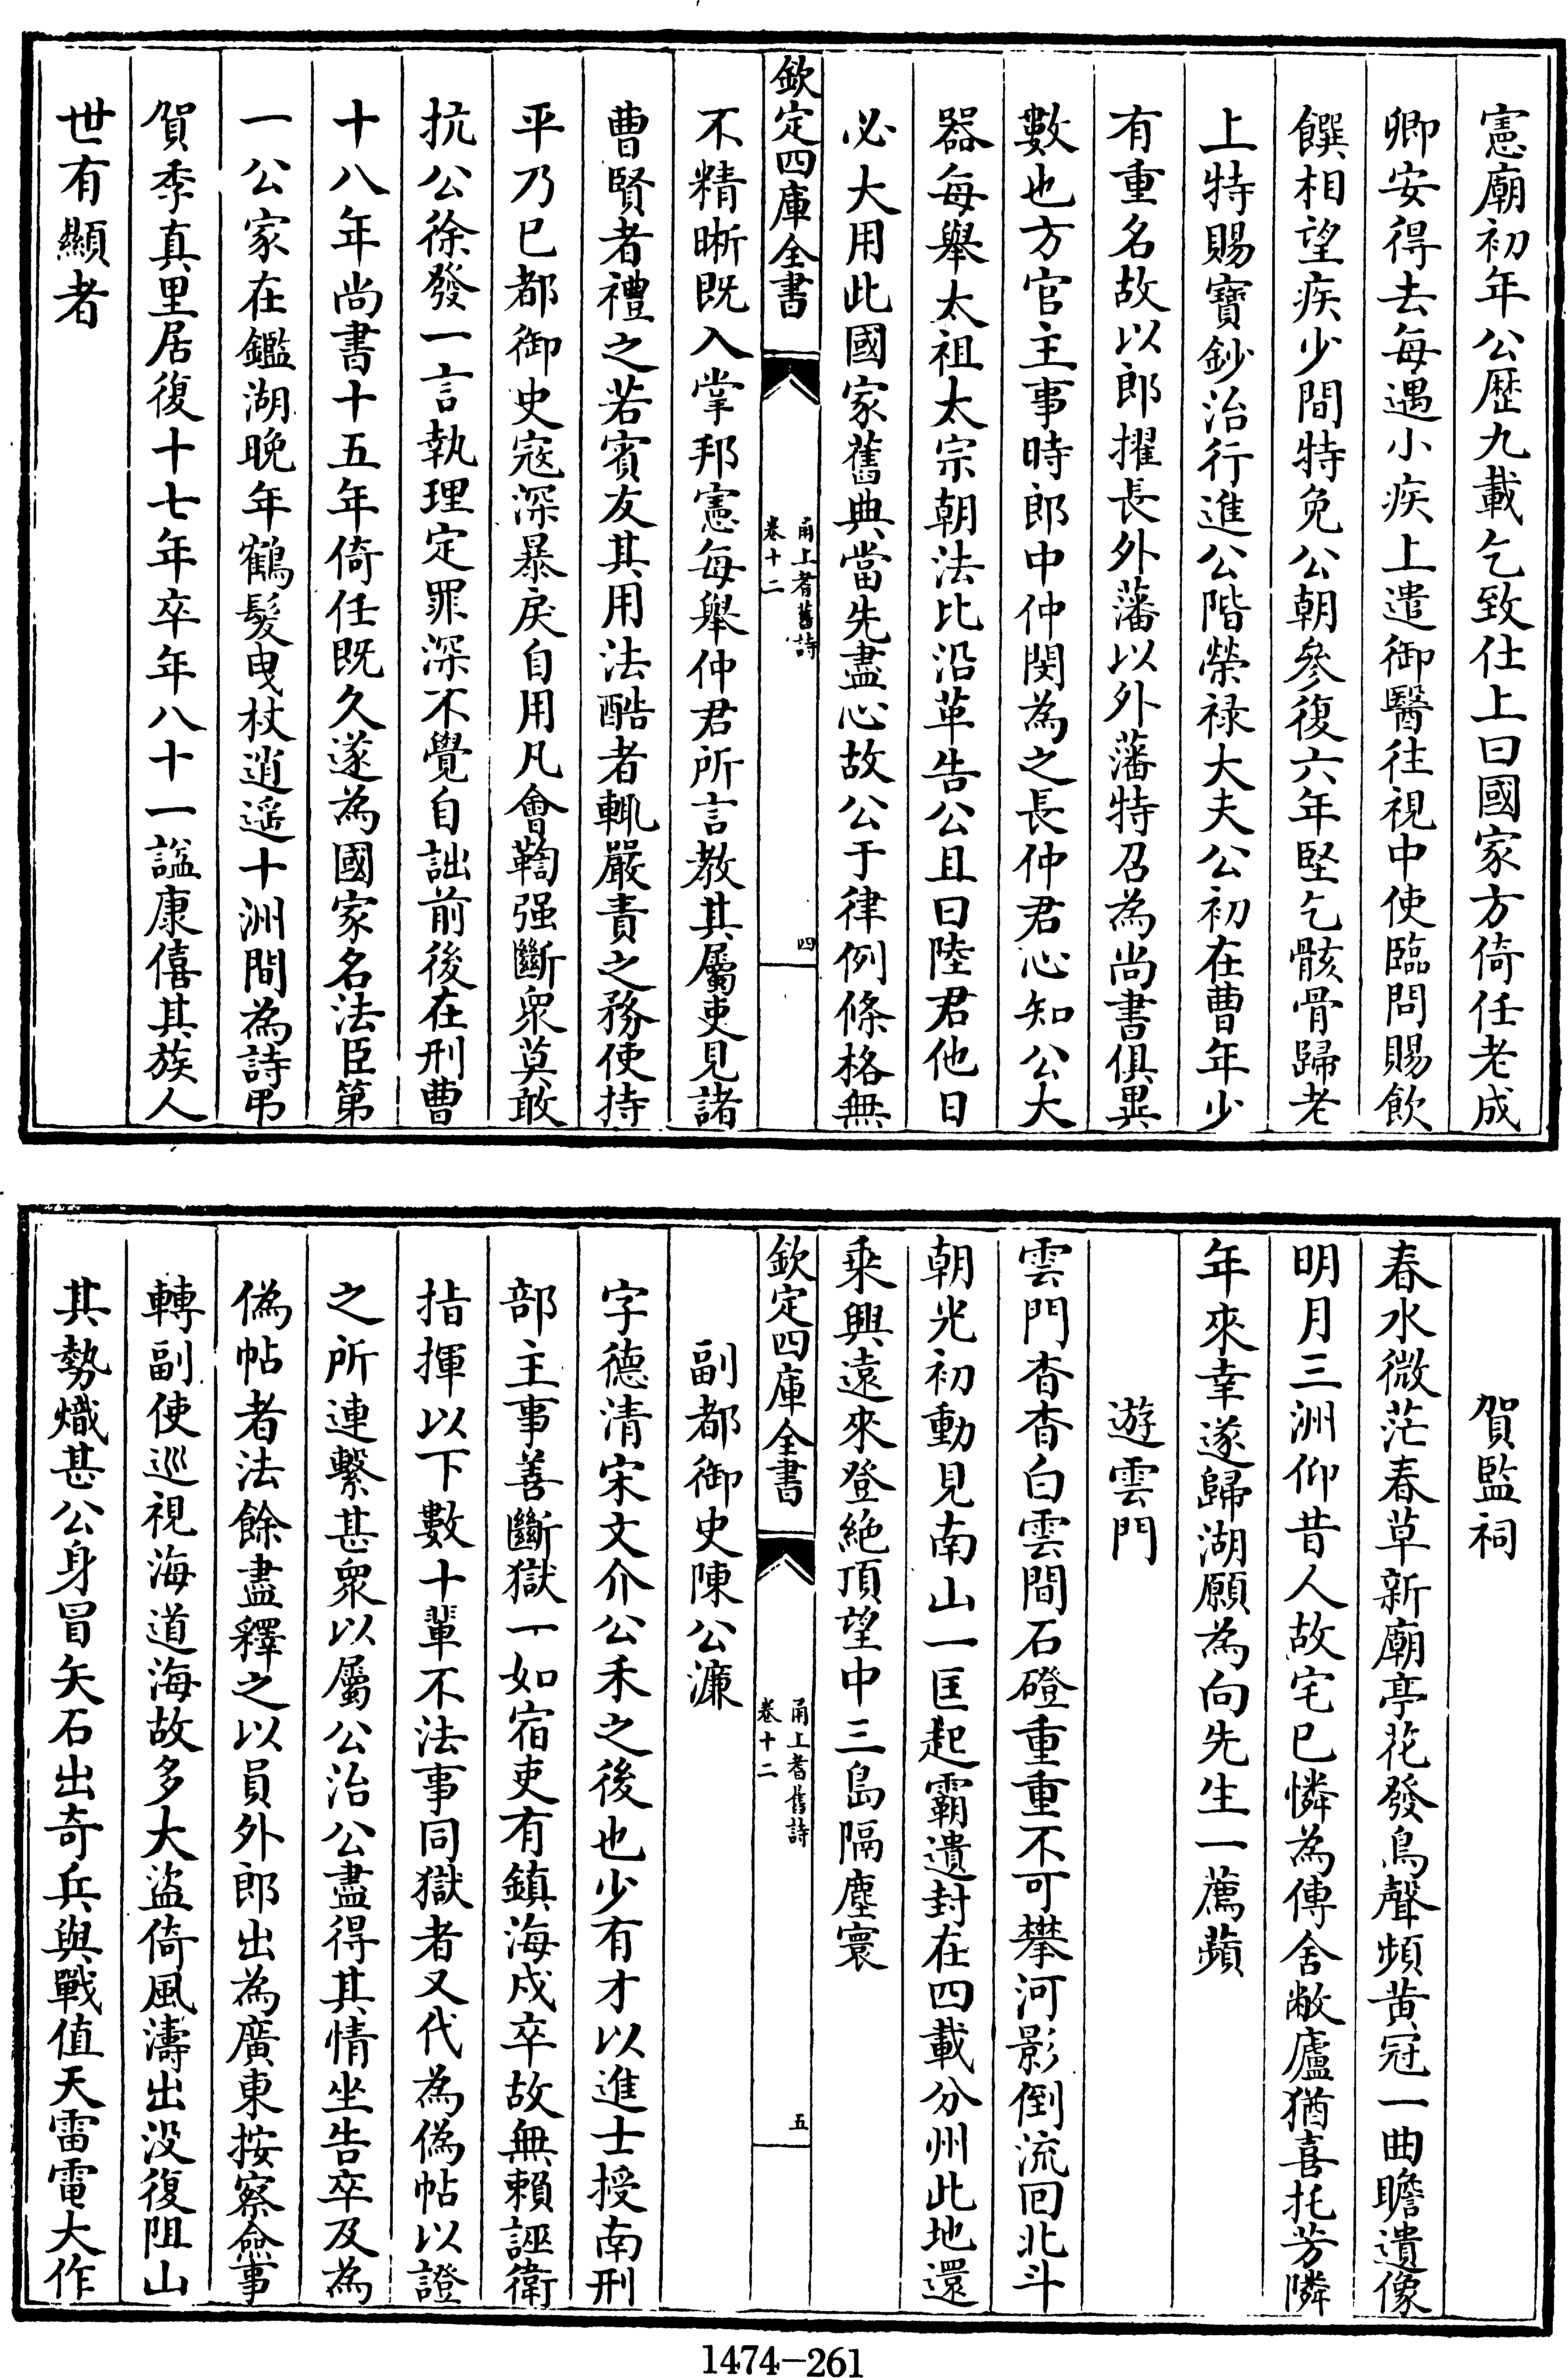 憲廟初年公歴九載乞致仕上曰國家方倚任老成
卿安得去每遇小疾上遣御醫往視中使臨問賜飲
饌相望疾少間特免公朝參復六年堅乞骸骨歸老
上特賜寶鈔治行進公階榮禄大夫公初在曹年少
有重名故以郎擢長外藩以外藩特召為尚書俱異
數也方官主事時郎中仲閔為之長仲君心知公大
器每舉太祖太宗朝法比沿革告公且曰陸君他日
必大用此國家舊典當先盡心故公于律例條格無
欽定四庫全書
甬上耆舊詩
卷十二
四
不精晰既入掌邦憲每舉仲君所言教其屬吏見諸
曹賢者禮之若賓友其用法酷者輒嚴責之務使持
平乃已都御史寇深暴戾自用凡會鞫强斷衆莫敢
抗公徐發一言執理定罪深不覺自詘前後在刑曹
十八年尚書十五年倚任既久遂為國家名法臣第
一公家在鑑湖晚年鶴髮曳杖逍遥十洲間為詩弔
賀季真里居復十七年卒年八十一諡康僖其族人
世有顯者
賀監祠
春水微茫春草新廟亭花發鳥聲頻黄冠一曲瞻遺像
明月三洲仰昔人故宅已憐為傳舍敝廬猶喜托芳隣
年來幸遂歸湖願為向先生一薦蘋
遊雲門
雲門杳杳白雲間石磴重重不可攀河影倒流囘北斗
朝光初動見南山一匡起霸遺封在四載分州此地還
乘興遠來登絶頂望中三島隔塵寰
欽定四庫全書
甬上耆舊詩
卷十二
五
副都御史陳公濂
字德清宋文介公禾之後也少有才以進士授南刑
部主事善斷獄一如宿吏有鎮海戍卒故無賴誣衛
指揮以下數十輩不法事同獄者又代為偽帖以證
之所連繫甚衆以屬公治公盡得其情坐告卒及為
偽帖者法餘盡釋之以員外郎出為廣東按察僉事
轉副使巡視海道海故多大盜倚風濤出没復阻山
其勢熾甚公身冒矢石出奇兵與戰值天雷電大作
1474-261